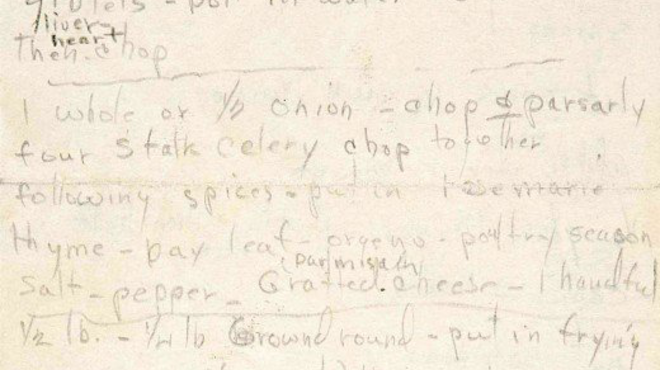 giblets - put in water
liver -
heart
Then chop
1 whole or 1/2 onion - chop & parsarly
four stalk celery chop together
following spices - put in rosemarie
thyme - pay leaf - orgeno - poultry season
(parmisain)
salt - pepper - Gratted cheese - 1 handful
1/2 lb. - 1/4 lb Ground round - put in frying